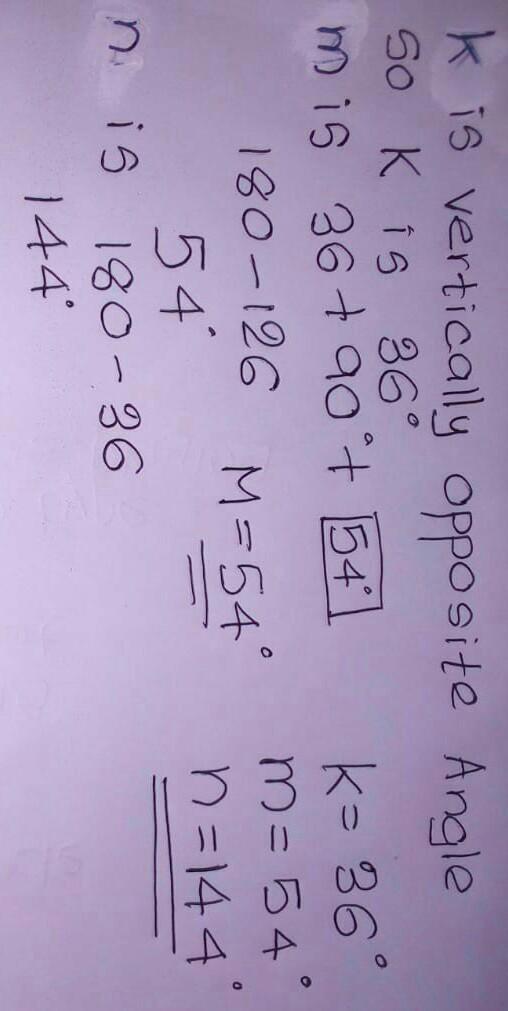 k is vertically opposite Angle
so k is 36°
m is 36 + 90° + 54°
180 - 126
54°
M = 54°
n is 180 - 36
144°
k = 36°
m = 54°
n = 144°